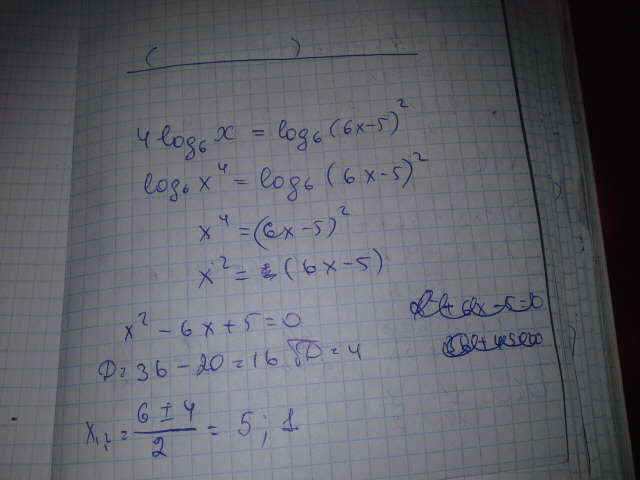 ( )
4 log₆ x = log₆ (6x-5)²
log₆ x⁴ = log₆ (6x-5)²
x⁴ = (6x-5)²
x² = (6x-5)
x² - 6x + 5 = 0
D = 36 - 20 = 16 √D = 4
x₁,₂ = (6 ± 4)/2 = 5; 1